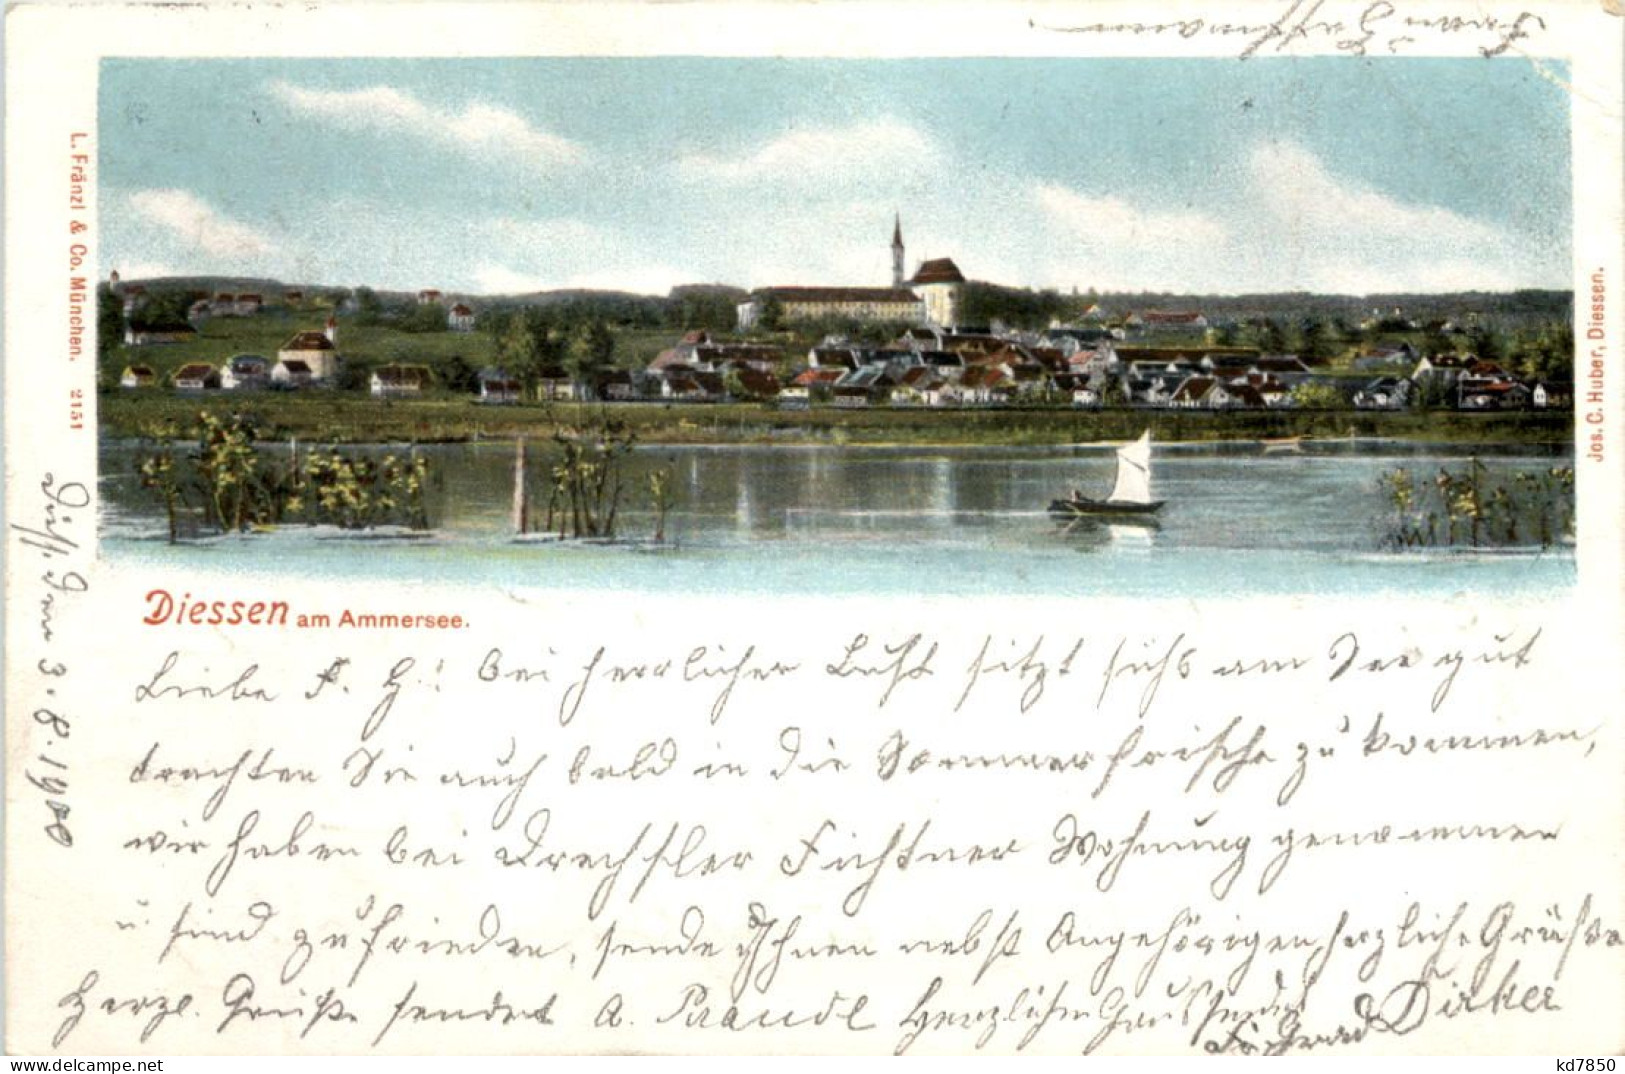 L. Fränzl & Co. München. 2151
Jos. C. Huber, Diessen.
Diessen am Ammersee.
3. 8. 1900
Liebe F. H.! bei herrlicher Luft sitzt sichs am See gut
trachten Sie auch bald in die Sommerfrische zu kommen,
wir haben bei Drechsler Fichtner Wohnung genommen
u. sind zufrieden, sende Ihnen nebst Angehörigen herzliche Grüße
Herzl. Grüße sendet A. Prandl Herzlichen Gruß sendet
delcampe.net
kd7850